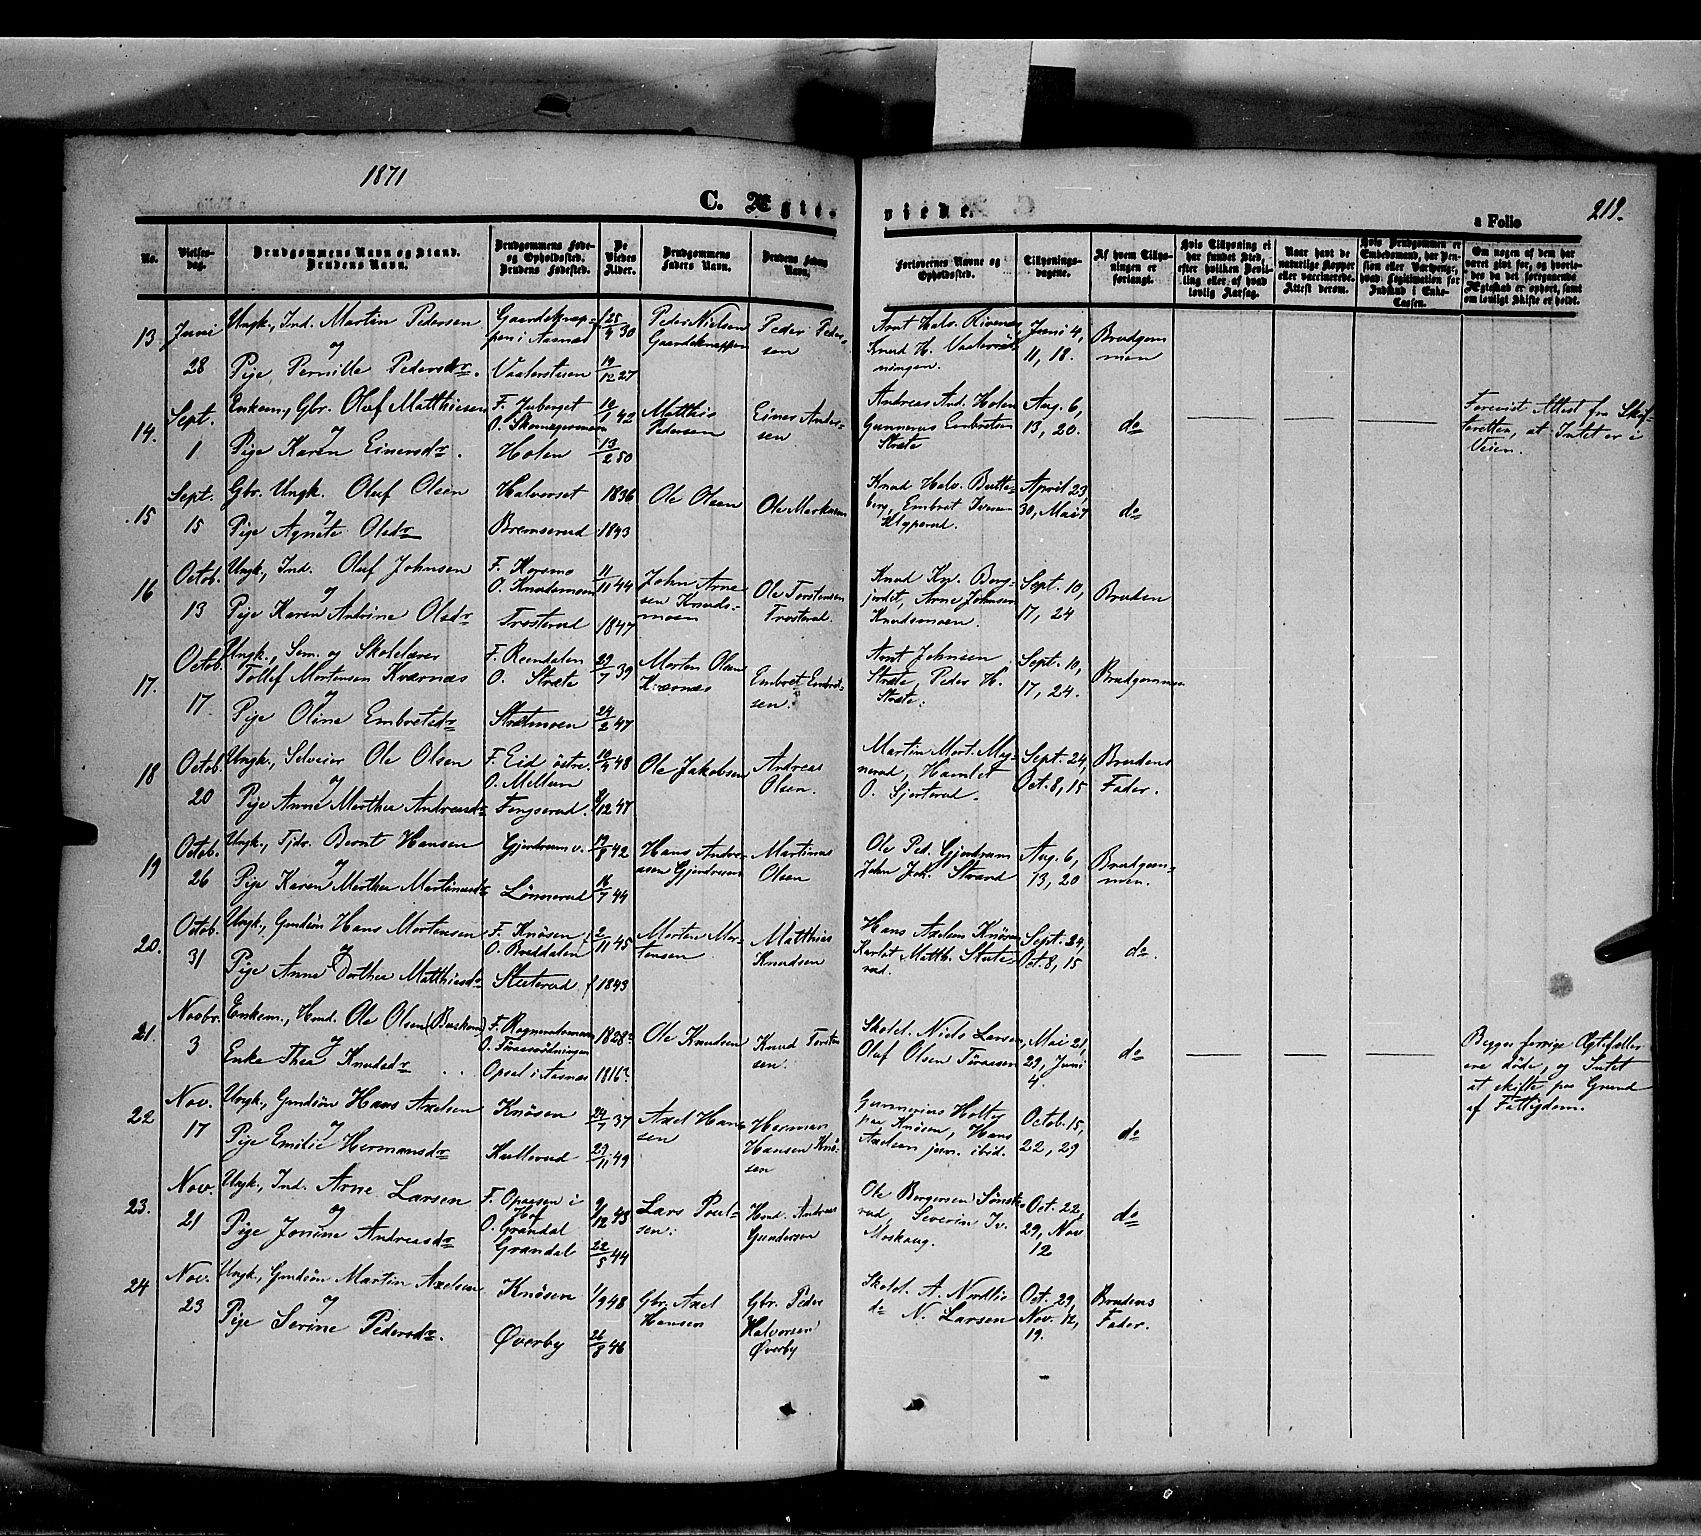 1871
C. Ægte-
viede.
a Folio
219.
No.
Vielses-
dag.
Brudgommens Navn og Stand.
Brudens Navn.
Brudgommens Føde-
og Opholdssted.
Brudens Fødested.
De
Viedes
Alder.
Brudgommens
Faders Navn.
Brudens Faders
Navn.
Forlovernes Navne og
Opholdssted.
Tillysnings-
dagene.
Af hvem Tillys-
ningen er
forlangt.
Hvis Tillysning ei
har fundet Sted,
efter hvilken Bevil-
ling eller af hvad
lovlig Aarsag.
Naar havt de
naturlige Kopper
eller vaccinerede.
Attest derom.
Hvis Brudgommen er
Embedsmand, har Pen-
sion eller Vartpenge,
hvad Legitimation for
Indskud i Enke-
Cassen.
Om nogen af dem har
været gift før, og hvorle-
des da det foregaaende
Ægteskab er ophørt, samt
om lovligt Skifte er holdt.
13. Juni 28
Ungk., Ind. Martin Pedersen
og
Pige Pernille Pedersdr.
Gaardeknap-
pen i Aasnæs
Vaalerstuen
25/4 30
19/12 27
Peder Nielsen
Gaardeknappen
Peder Peder-
sen
Arnt Halv. Rivenæs
Knud H. Vaalersæt-
ningen.
Juni 4,
11, 18.
Brudgom
men
14. Sept. 1
Enkem., Gbr. Oluf Matthiesen
og
Pige Karen Einersdr.
F. Juberget
O. Skomagermoen
Holen
42
13/2 50
Matthis
Pedersen
Einer Ander-
sen.
Andreas And. Holen
Gunnerus Embretsen
Stræte
Aug. 6,
13, 20.
do
Forevist Attest fra Skif-
teretten, at Intet er i
Veien.
15 Sept. 15
Gbr. Ungk. Oluf Olsen
og
Pige Agnete Olsdr
Halvorset
Bremserud
1836
1843
Ole Olsen
Ole Markusen
Knud Halv. Butte-
berg, Embret Iversen
Klyperud.
April 23,
30, Mai 7
do
16 Octob. 13
Ungk., Ind. Oluf Johnsen
og
Pige Karen Andrine Olsdr
F. Hagemo
O. Knudsmoen
Trosterud
11/11 44
1847
John Arne
sen Knuds-
moen
Ole Torstensen
Trosterud.
Knud Kn. Berg-
jordet, Arne Johnsen
Knudsmoen.
Sept. 10,
17, 24
Bruden
17. Octob. 17.
Ungk., Sem. og Skolelærer
Tollef Mortensen Kværnæs
og
Pige Oline Embretsdr
F. Reendalen
O. Stræte
Strætmoen
29/7 39
24/2 47
Morten Olsen
Kværnæs
Embret Embret-
sen.
Arnt Johnsen
Stræte, Peder H.
Stræte.
Sept. 10,
17, 24.
Brudgommen
18 Octob. 20
Ungk., Selveier Ole Olsen
og
Pige Anne Marthea Andreasdr
F. Eid østre.
O. Mellem
Fengserud.
19/4 48
8/12 47
Ole Jakobsen
Andreas
Olsen.
Martin Mort. Mag-
nerud, Hamlet
O. Gjerterud.
Sept. 24,
Oct. 8, 15
Brudens
Fader.
19 Octob. 26
Ungk., Tjdr. Bernt Hansen
og
Pige Karen Marthea Martinusdr
Gjerdrum v.
Lønnerud
8 42
16/7 44
Hans Andre-
asen Gjerdrum
Martinus
Olsen
Ole Ped. Gjerdrum
John Joh. Strand
Aug. 6,
13, 20
Brudgom-
men.
20. Octob. 31
Ungk., Gmdsøn Hans Mortensen
og
Pige Anne Dorthea Matthiesdr
F. Knøsen
O. Breddalen
Sluterud
2/11 45
1843
Morten Mor-
tensen
Matthies
Knudsen
Hans Axelsen Knøsen
Karlot Matth. Slute-
rud.
Sept. 24,
Oct. 8, 15
do.
21. Novbr. 3
Enkem., Hmd. Ole Olsen (Buskom)
og
Enke Thea Knudsdr
F. Rogmadsmoen
O.Føraasrødningen
Opsal i Aasnæs
1828
1816
Ole Knudsen
Knud Torsten
sen.
Skolel. Niels Larsen,
Oluf Olsen Føraasen
Mai 21,
29, Juni
4.
do
Begges forrige Ægtefæller
ere døde, og Intet
at skifte paa Grund
af Fattigdom.
22 Nov. 17
Ungk., Gmdsøn Hans Axelsen
og
Pige Emilie Hermansdr
Knøsen
Kullerud
24/7 37
29/11 49
Axel Han
sen
Herman
Hansen Knø-
sen
Gunnerius Holte,
paa Knøsen, Hans
Axelsen jun. ibid.
Octob. 15,
22, 29
do
23. Nov. 21
Ungk., Ind. Arne Larsen
og
Pige Jonine Andreasdr
F. Opaasen i
Hof
O. Grandal
Grandal
9/12 45
22/5 44
Lars Poul-
sen.
Hmd. Andreas
Gundersen
Ole Borgersen Sønste
rud, Severin Iv.
Moskaug.
Oct. 22,
29, Nov
12
do
24 Nov. 23
Ungk., Gmdsøn Martin Axelsen
og
Pige Serine Pedersdr.
Knøsen
Øverby
1/9 48
26/8 46
Gbr. Axel
Hansen
Gbr. Peder
Halvorsen
Øverby
Skolel. A. Nordlie
do N. Larsen
Oct. 29,
Nov. 12,
19.
Brudens
Fader.